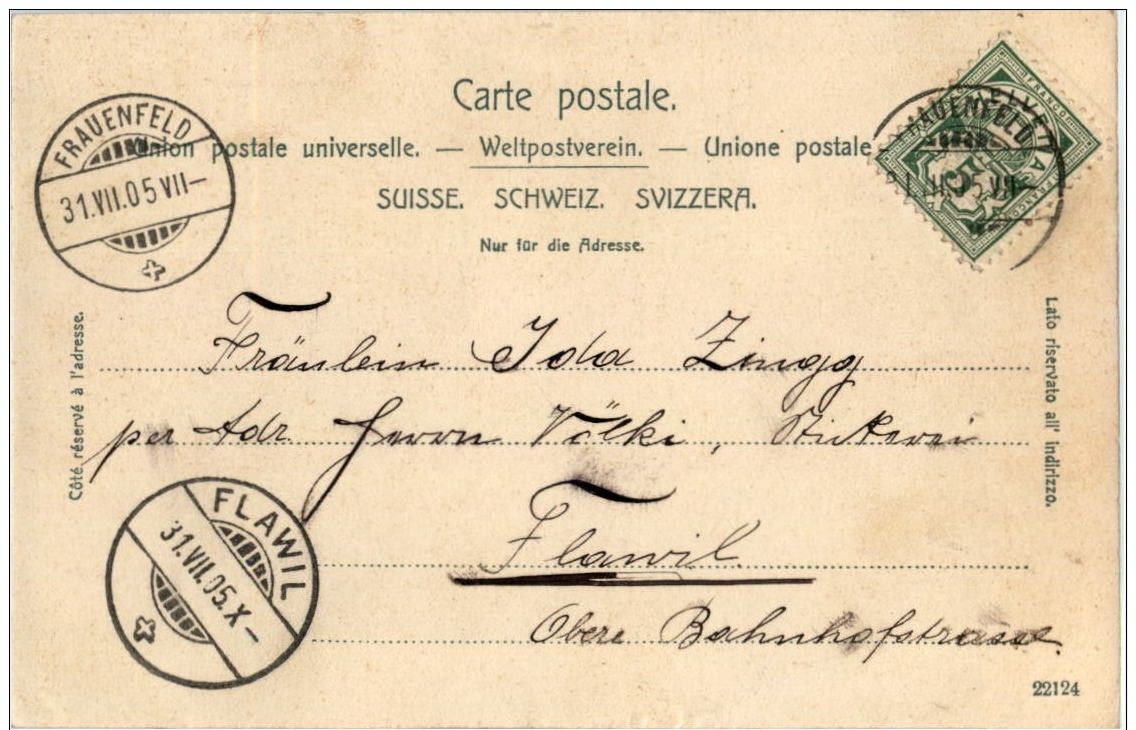 Carte postale.
Union postale universelle. — Weltpostverein. — Unione postale
SUISSE. SCHWEIZ. SVIZZERA.
Nur für die Adresse.
FRAUENFELD
31.VII.05 VII–
HELVETIA
FRANCO
FRANCO
5
FRAUENFELD
Côté réservé à l'adresse.
Lato riservato all' indirizzo.
Fräulein Ida Zingg
per Adr. Herrn Völki, Stickerei
Flawil.
Obere Bahnhofstrasse.
FLAWIL
31.VII.05.X–
22124